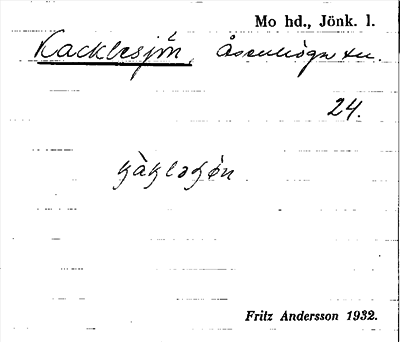 Mo hd., Jönk. l.
Kacklesjön, Åsenhöga sn.
24.
Fritz Andersson 1932.